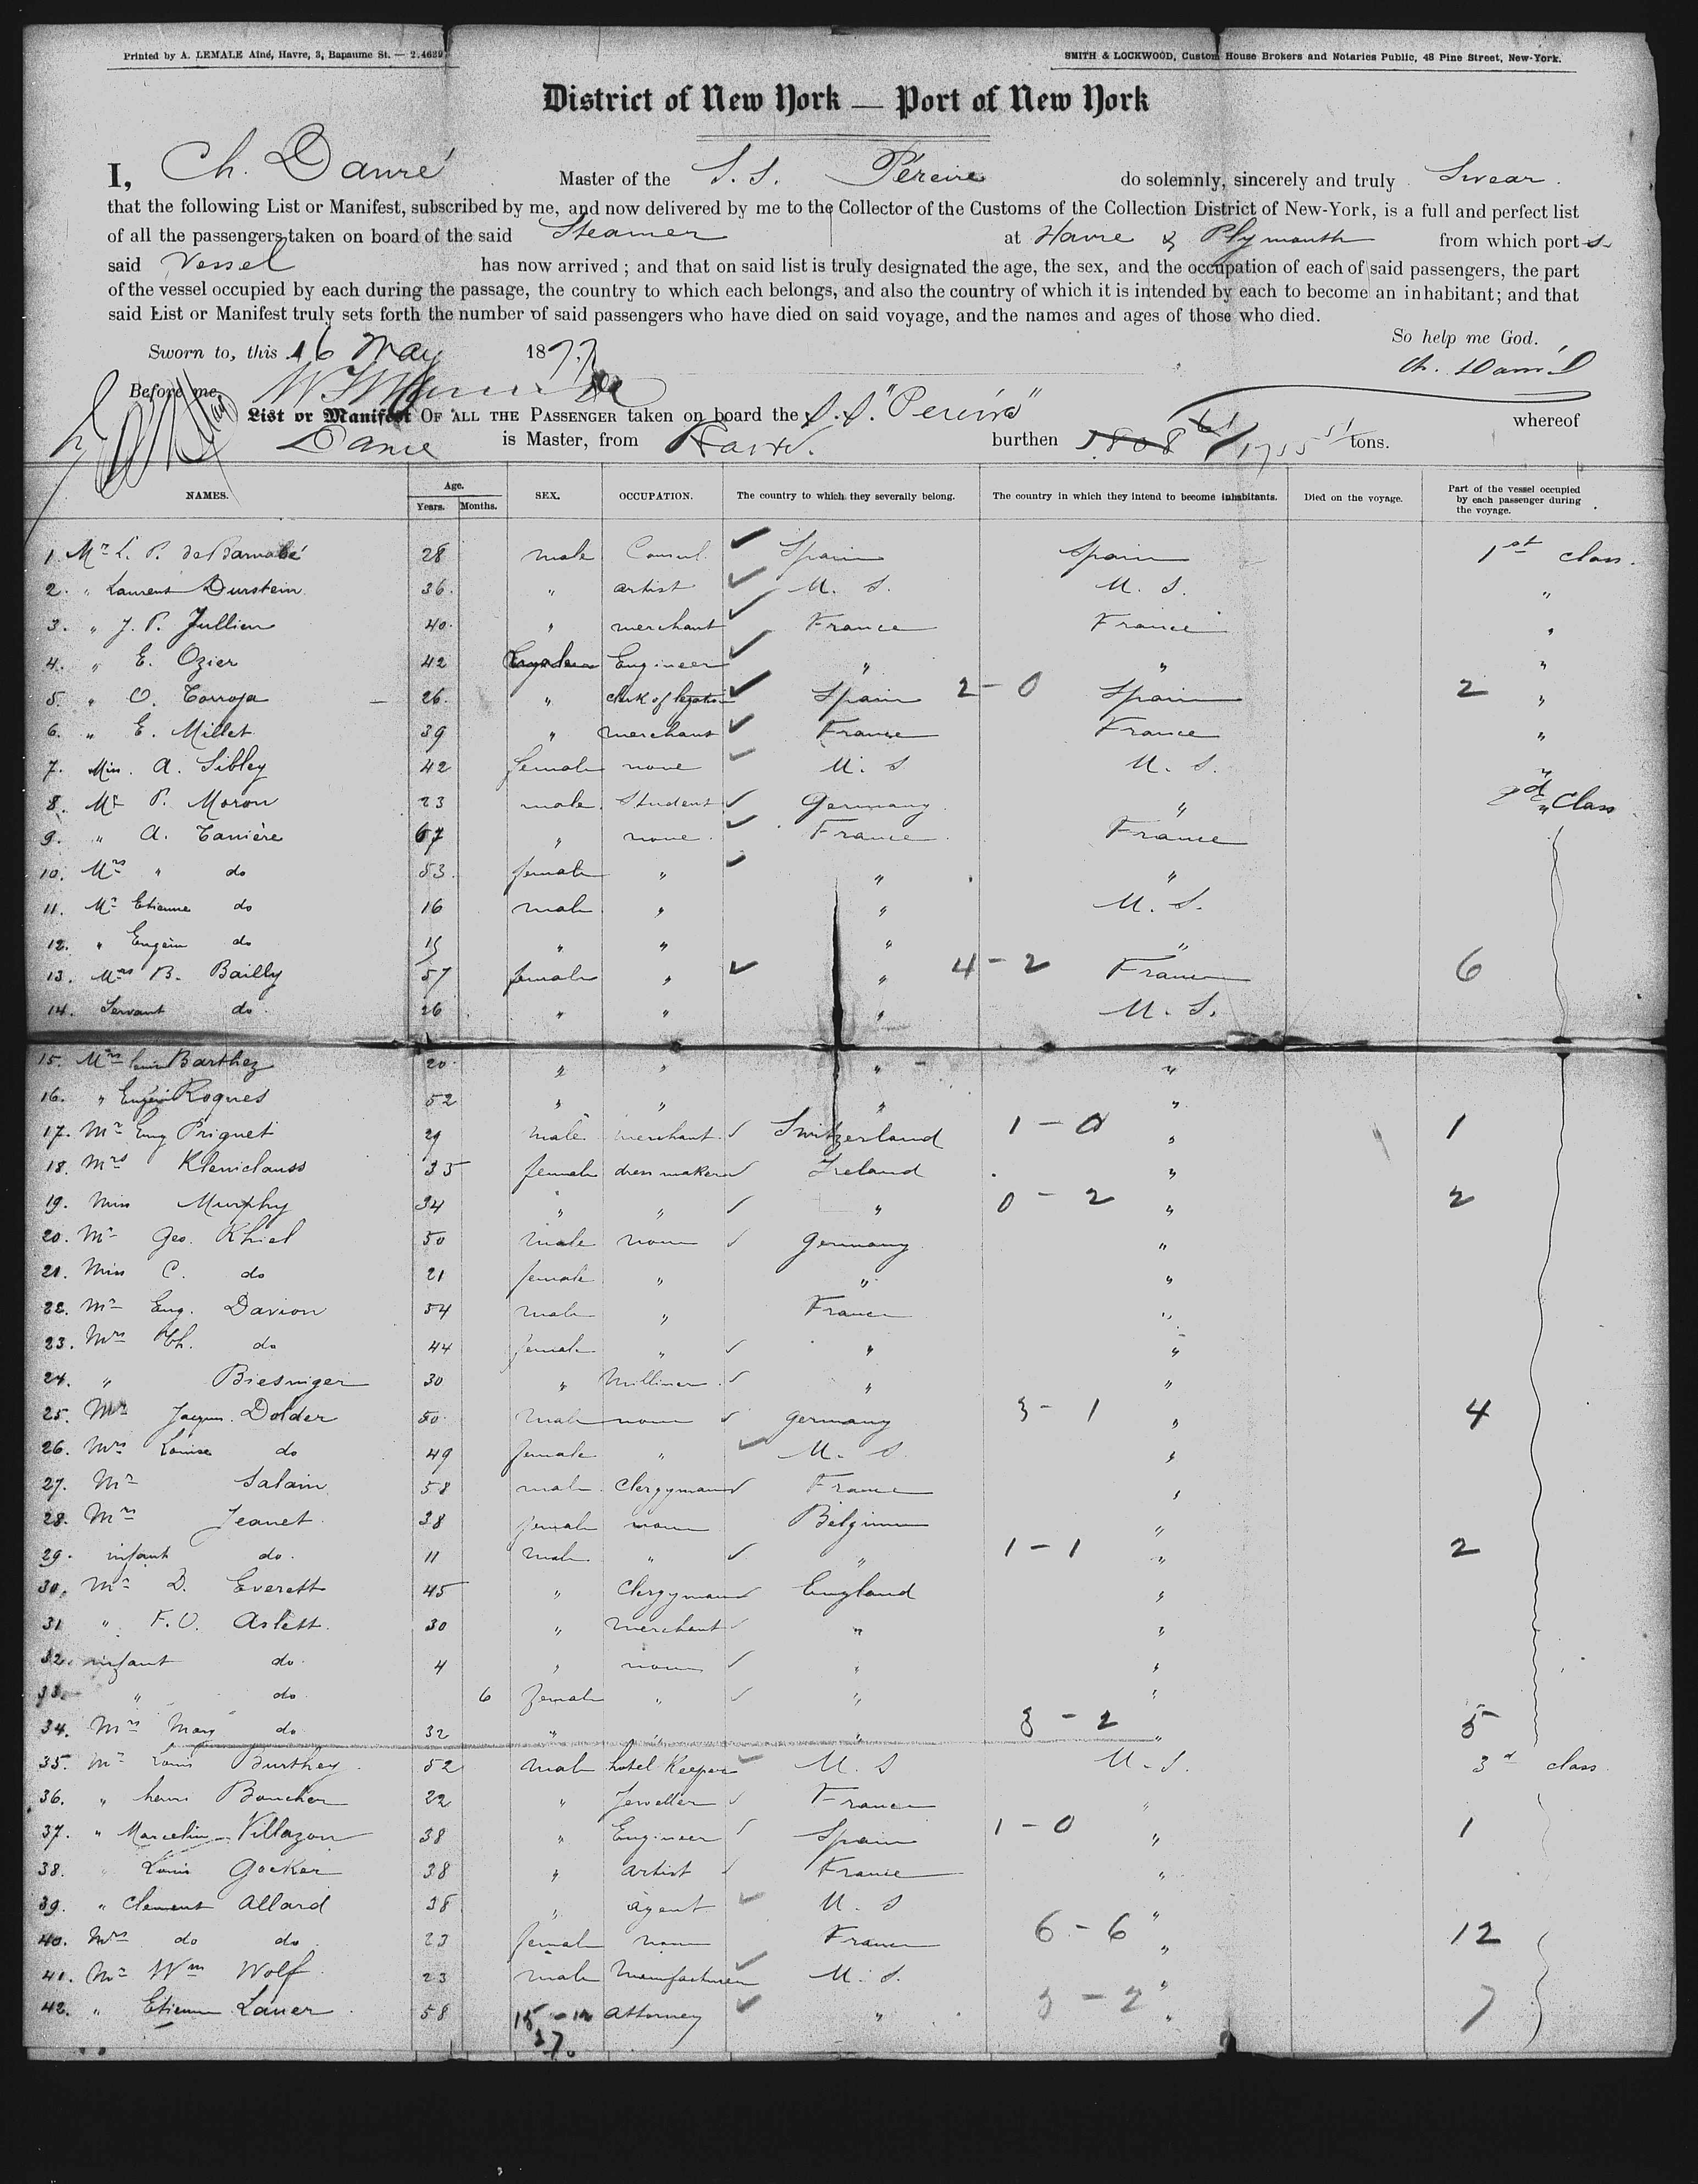 Printed by A. LEMALE Aîné, Havre, 3, Bapaume St. — 2.4639
SMITH & LOCKWOOD, Custom House Brokers and Notaries Public, 48 Pine Street, New-York.
District of New York — Port of New York
I, Ch. Danré Master of the S. S. Péreire do solemnly, sincerely and truly Swear.
that the following List or Manifest, subscribed by me, and now delivered by me to the Collector of the Customs of the Collection District of New-York, is a full and perfect list
of all the passengers taken on board of the said Steamer at Havre & Plymouth from which port s
said Vessel has now arrived ; and that on said list is truly designated the age, the sex, and the occupation of each of said passengers, the part
of the vessel occupied by each during the passage, the country to which each belongs, and also the country of which it is intended by each to become an inhabitant; and that
said List or Manifest truly sets forth the number of said passengers who have died on said voyage, and the names and ages of those who died.
So help me God.
Sworn to, this 16 May 1877
Before me,
List or Manifest OF ALL THE PASSENGER taken on board the S. S. "Pereire" whereof
Danré is Master, from Havre. burthen tons.
NAMES. Age. Years. Months. SEX. OCCUPATION. The country to which they severally belong. The country in which they intend to become inhabitants. Died on the voyage. Part of the vessel occupied by each passenger during the voyage.
1. Mr L. P. de Barnabé 28 male Consul Spain Spain 1st class.
2. " Laurent Durstein 36. " artist U. S. U. S. "
3. " J. P. Jullien 40. " merchant France France "
4. " E. Ozier 42 Engineer " " "
5. " O. Torroja 26. " clerk of legation Spain 2 - 0 Spain 2 "
6. " E. Millet 39 " merchant France France "
7. Miss. A. Sibley 42 female none U. S U. S. "
8. Mr P. Moron 23 male Student Germany " 2d class
9. " A. Tanière 67 " none France France
10. Mrs " do 53. female " " "
11. Mr Etienne do 16 male " " U. S.
12. " Eugène do 15 " " " "
13. Mrs B. Bailly 57 female " " 4 - 2 France 6
14. Servant do 26 " " " U. S.
15. Mrs Barthez 20 " " " "
16. " Roques 52 " " " "
17. Mr Eug Priquet 29 male merchant Switzerland 1 - 0 " 1
18. Mrs Kleniclauss 35 female dress maker Ireland "
19. Miss Murphy 34 " " " 0 - 2 " 2
20. Mr Geo. Khiel 50 male none Germany "
21. Miss C. do 21 female " " "
22. Mr Eug. Davion 54 male " France "
23. Mrs Ch. do 44 female " " "
24. " Biesniger 30 " Milliner " "
25. Mr Jacques. Dolder 50 male none Germany 3 - 1 " 4
26. Mrs Louise do 49 female " U. S "
27. Mr Salain 58 male Clergyman France "
28. Mrs Jeanet 38 female none Belgium "
29. infant do. 11 male " " 1 - 1 " 2
30. Mr D. Everett 45 " Clergyman England "
31 " F. O. Aslett. 30 " merchant " "
32. infant do 4 " none " "
33. " do 6 female " " "
34. Mrs Mary do 32 " " " 3 - 2 " 5
35. Mr Louis Burthey 52 male hotel Keeper U. S U. S. 3d class
36. " henri Boucher 22 " Jeweller France "
37. " Marcelin Villazon 38 " Engineer Spain 1 - 0 " 1
38. " Louis Gockar 38 " artist France "
39. " Clement Allard 38 " agent U. S "
40. Mrs do do 23 female none France 6 - 6 " 12
41. Mr Wm Wolf 23 male Manufacturer U. S. "
42. " Etienne Lauer 58 Attorney " 3 - 2 " 7